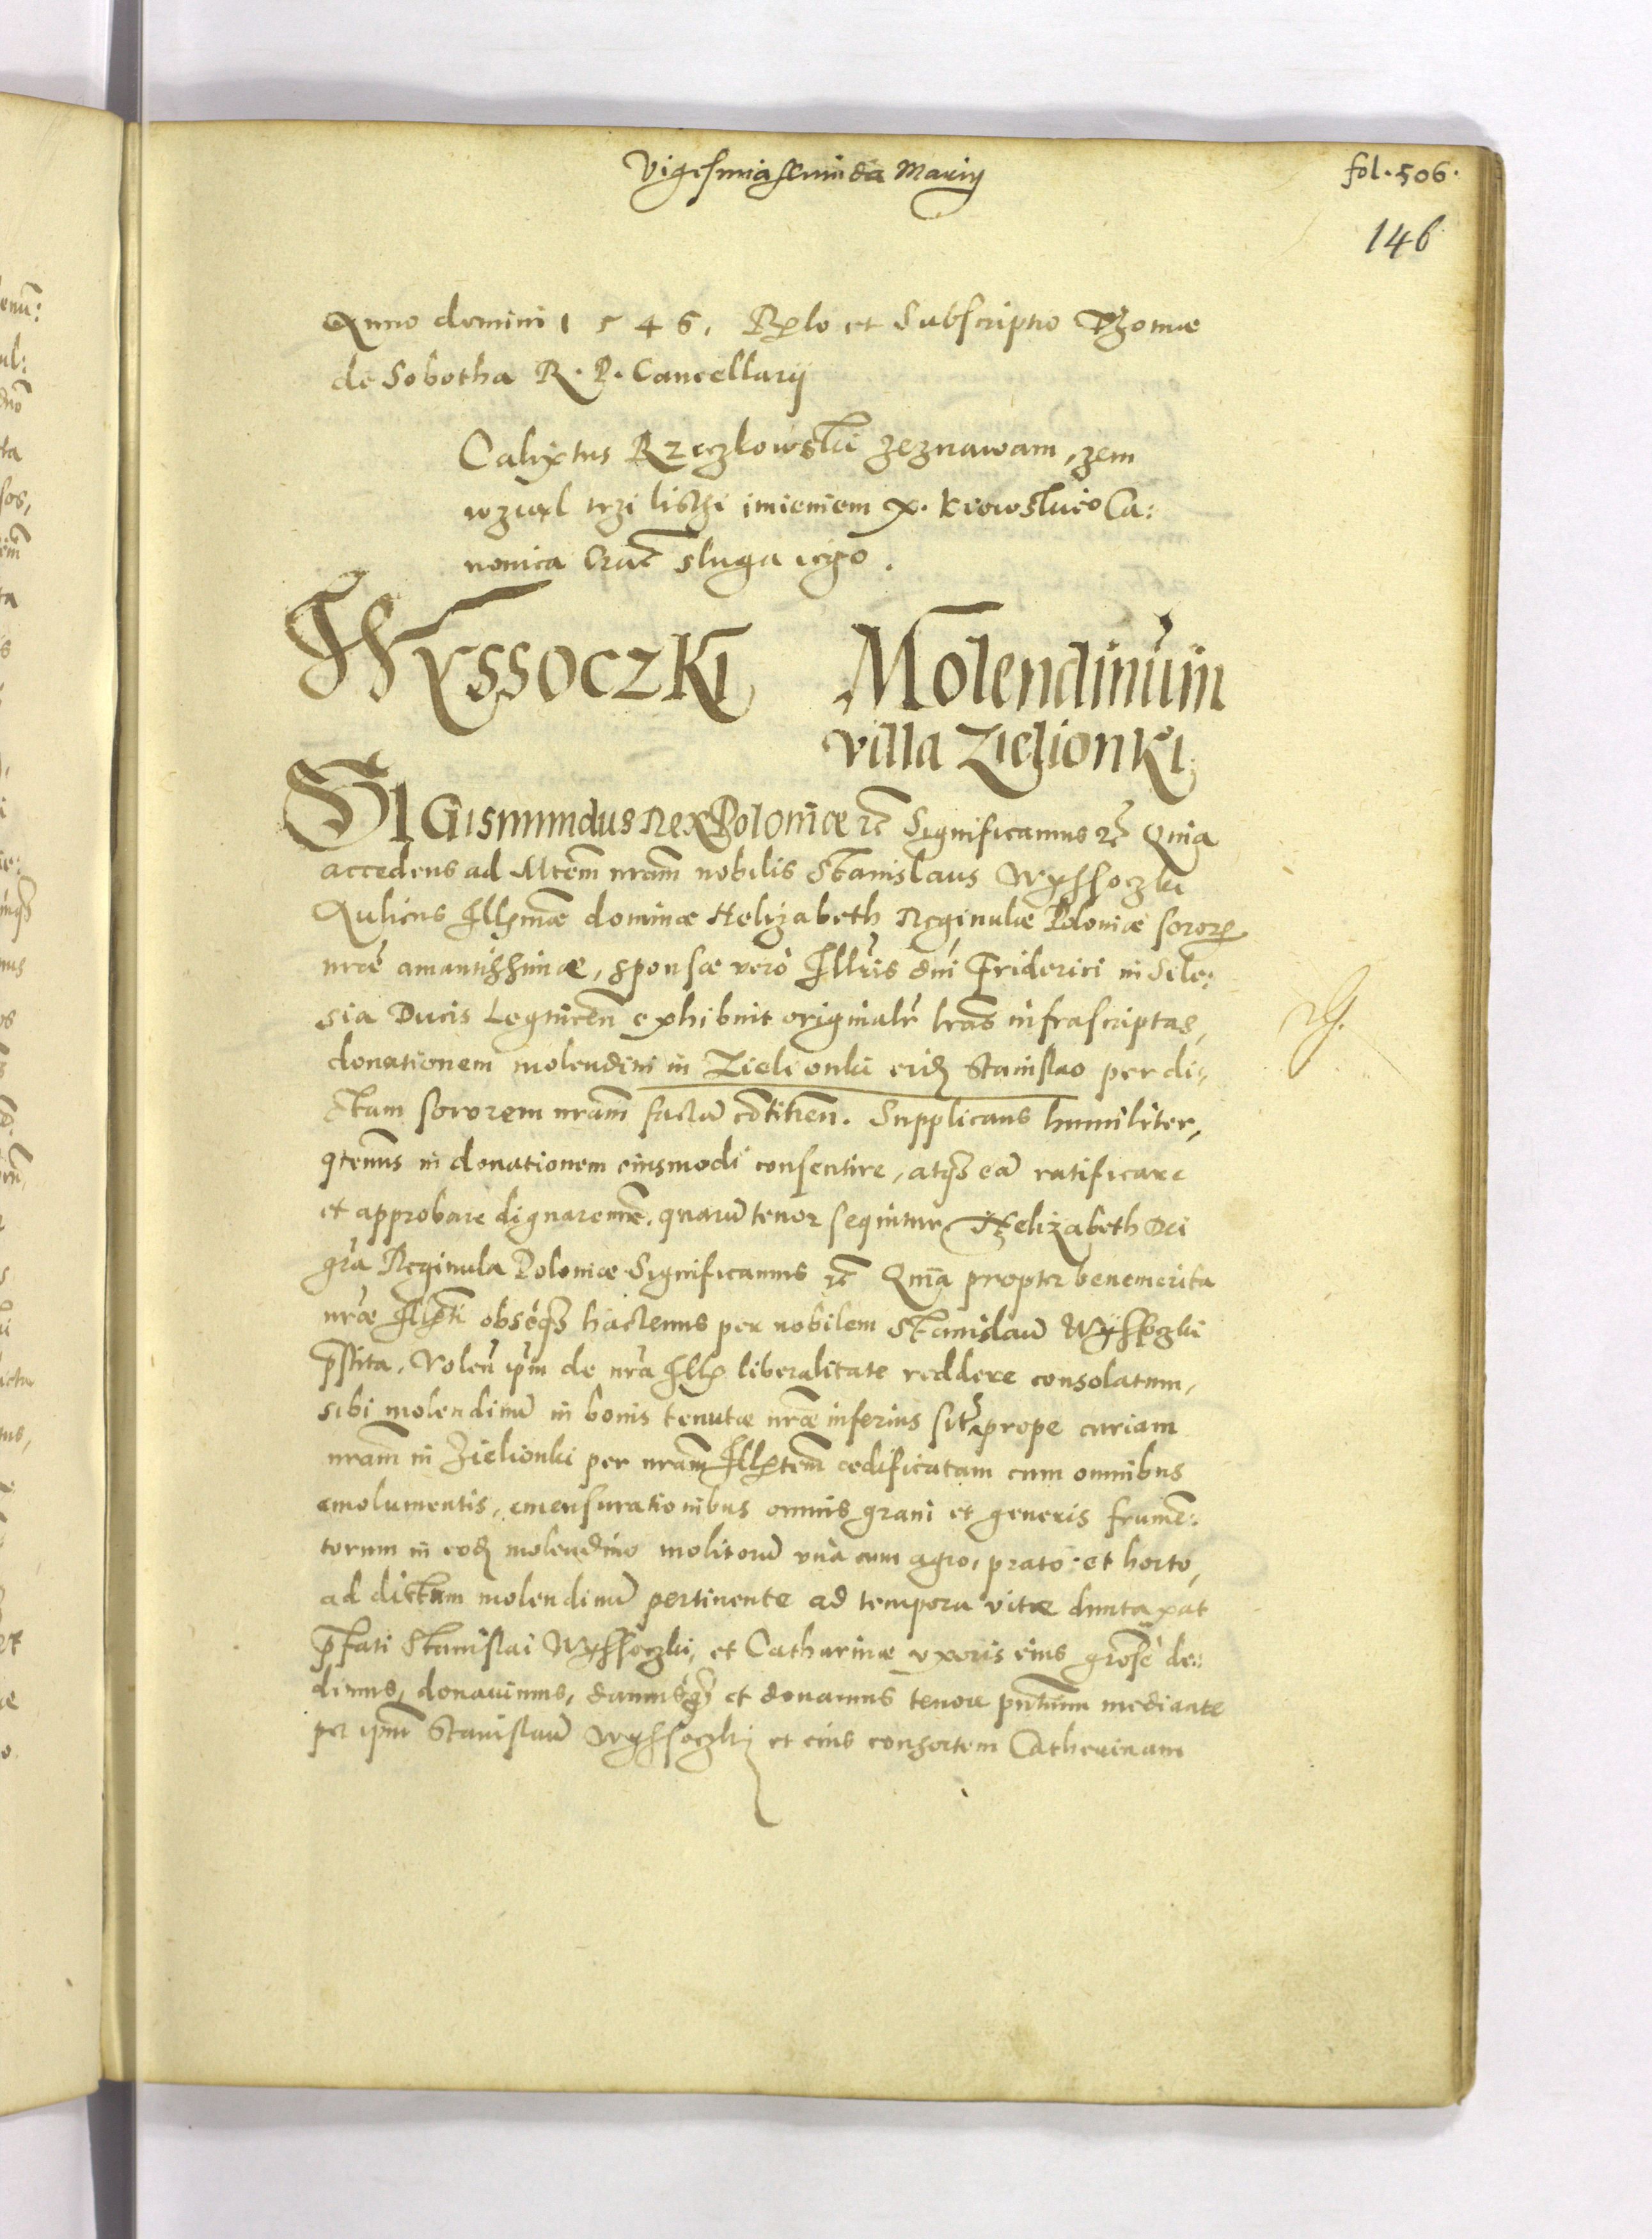 Vigesima secunda Marcij
fol. 506.
146
Anno domini 1546. Rƚo et Subscriptio Thomæ
de Sobotha R. P. Cancellarij
Calixtus Rzeczkowski zeznawam, zem
wzial trzi listhi imieniem x. Kiowskie᷉o Ca:
nonica Crac̃ sluga iego.
Wyssoczki Molendinum
villa Zielionki.
Sigismundus Rex Poloniæ ꝛc̃ Significamus ꝛc̃ Quia
accedens ad Mtẽm nrãm nobilis Stanislaus Wyssoczki
Aulicus Illmæ dominæ Helizabeth Reginulæ Poloniæ soror
nrẽ amantissimæ, sponsæ vero Illris dñi Friderici in Sile:
sia Ducis Legnicen̄ exhibuit originalr̃ lrãs infrascriptas,
donationem molendini in Zielionki eidẽ Stanislao per di:
ctam sororem nrãm factã cõtinen̄. Supplicans humiliter,
qtenus in donationem eiusmodi consentire, atqȝ eã ratificare
et approbare dignaremẽ. quarũ tenor sequitur. Helizabeth Dei
grã Reginula Poloniæ Significamus ꝛc̃ Qm̃a propter benemerita
nræ Illti obseqȝ hactenus per nobilem Stanislaũ Wyssoczki
p̃stita. Volen̄ ip̃m de nrã Ill liberalitate reddere consolatum,
sibi molendinũ in bonis tenutæ nræ inferius sitũ prope curiam
nrãm in Zielionki per nrãm Illtẽm ædificatam cum omnibus
emolumentis, emensurationibus omnis grani et generis frumẽ:
torum in eodẽ molendino molitorũ vna cum agro, prato: et horto,
ad dictum molendinũ pertinente ad tempora vitæ duntaxat
p̃fati Stanislai Wyssoczki, et Catharinæ vxoris eius grõse de:
dimus, donauimus, damusqȝ et donamus tenore pñtium mediante
per ip̃m Stanislaũ Wyssoczki et eius consortem Catherinam